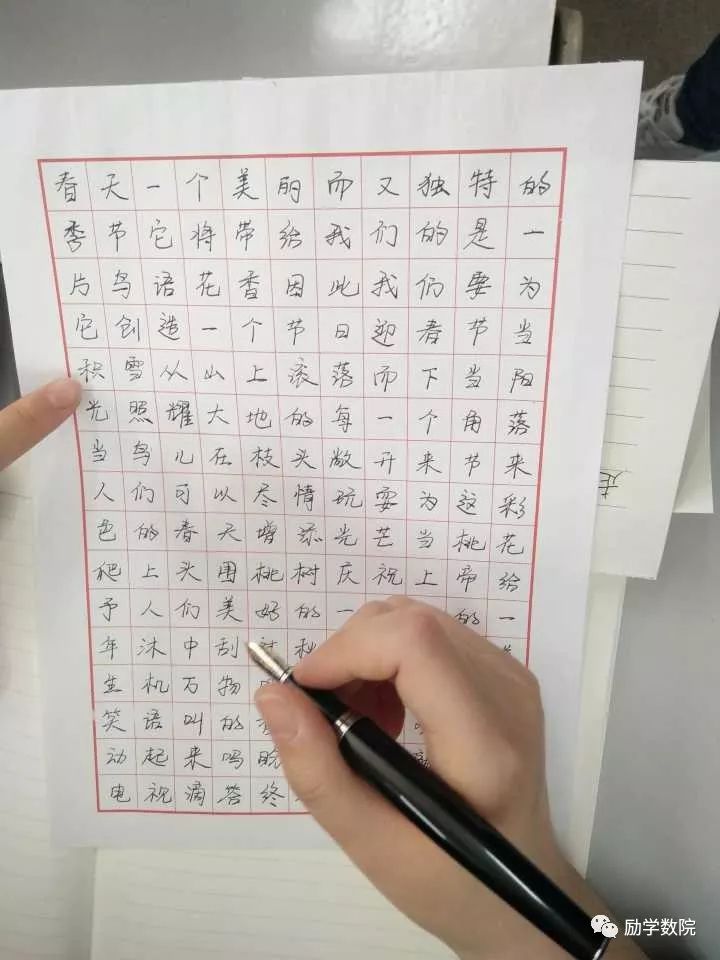 春天一个美丽而又独特的
季节它将带给我们的是一
片鸟语花香因此我们要为
它创造一个节日迎春节当
积雪从山上滚落而下当阳
光照耀大地的每一个角落
当鸟儿在枝头敞开来节来
人们可以尽情玩耍为这彩
色的春天增添光芒当桃花
爬上头围桃树庆祝上帝给
予人们美好的一 的一
年沐中刮 秋
生机万物
笑语叫的
动起来吗晚
电视滴答终
走
励学数院